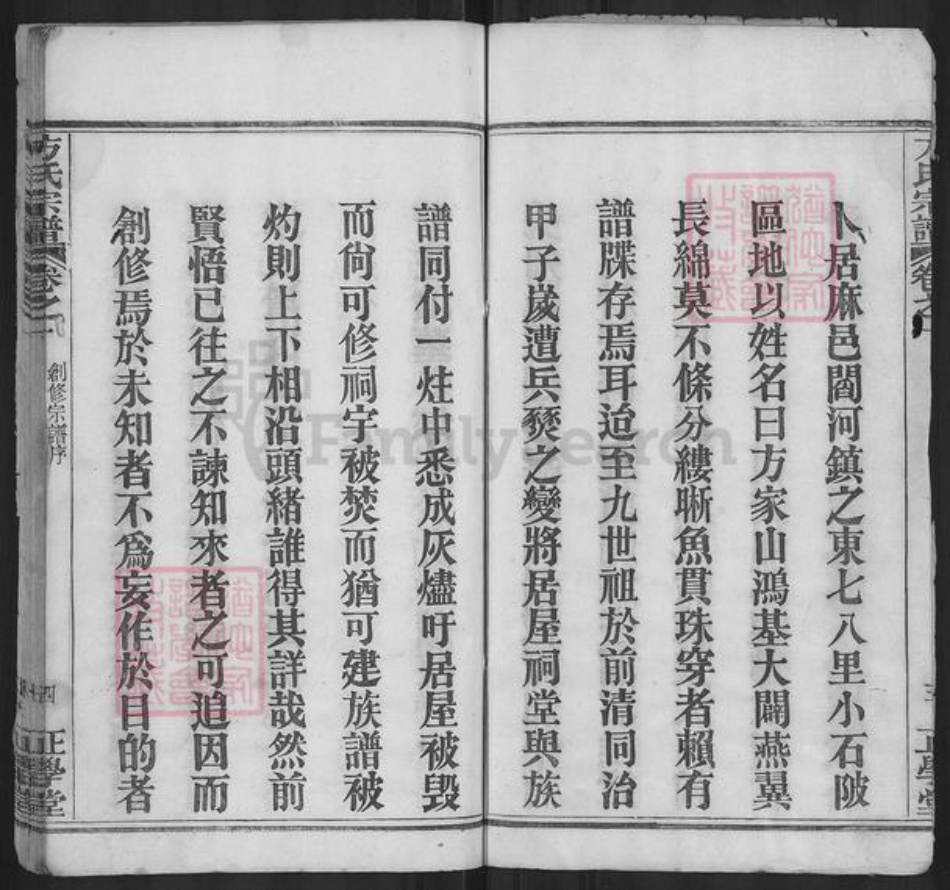 卜居麻邑閻河鎮之東七八里小石陂
區地以姓名曰方家山鴻基大闢燕翼
長綿莫不條分縷晰魚貫珠穿者賴有
譜牒存焉耳迨至九世祖於前清同治
甲子嵗遭兵燹之變將居屋祠堂與族
譜同付一炷中悉成灰燼吁居屋被毀
而尙可修祠宇被焚而猶可建族譜被
灼則上下相沿頭緒誰得其詳哉然前
賢悟已往之不諫知來者之可追因而
創修焉於未知者不爲妄作於目的者
方氏宗譜 卷之
創修宗譜序
四
正學堂
FamilySearch